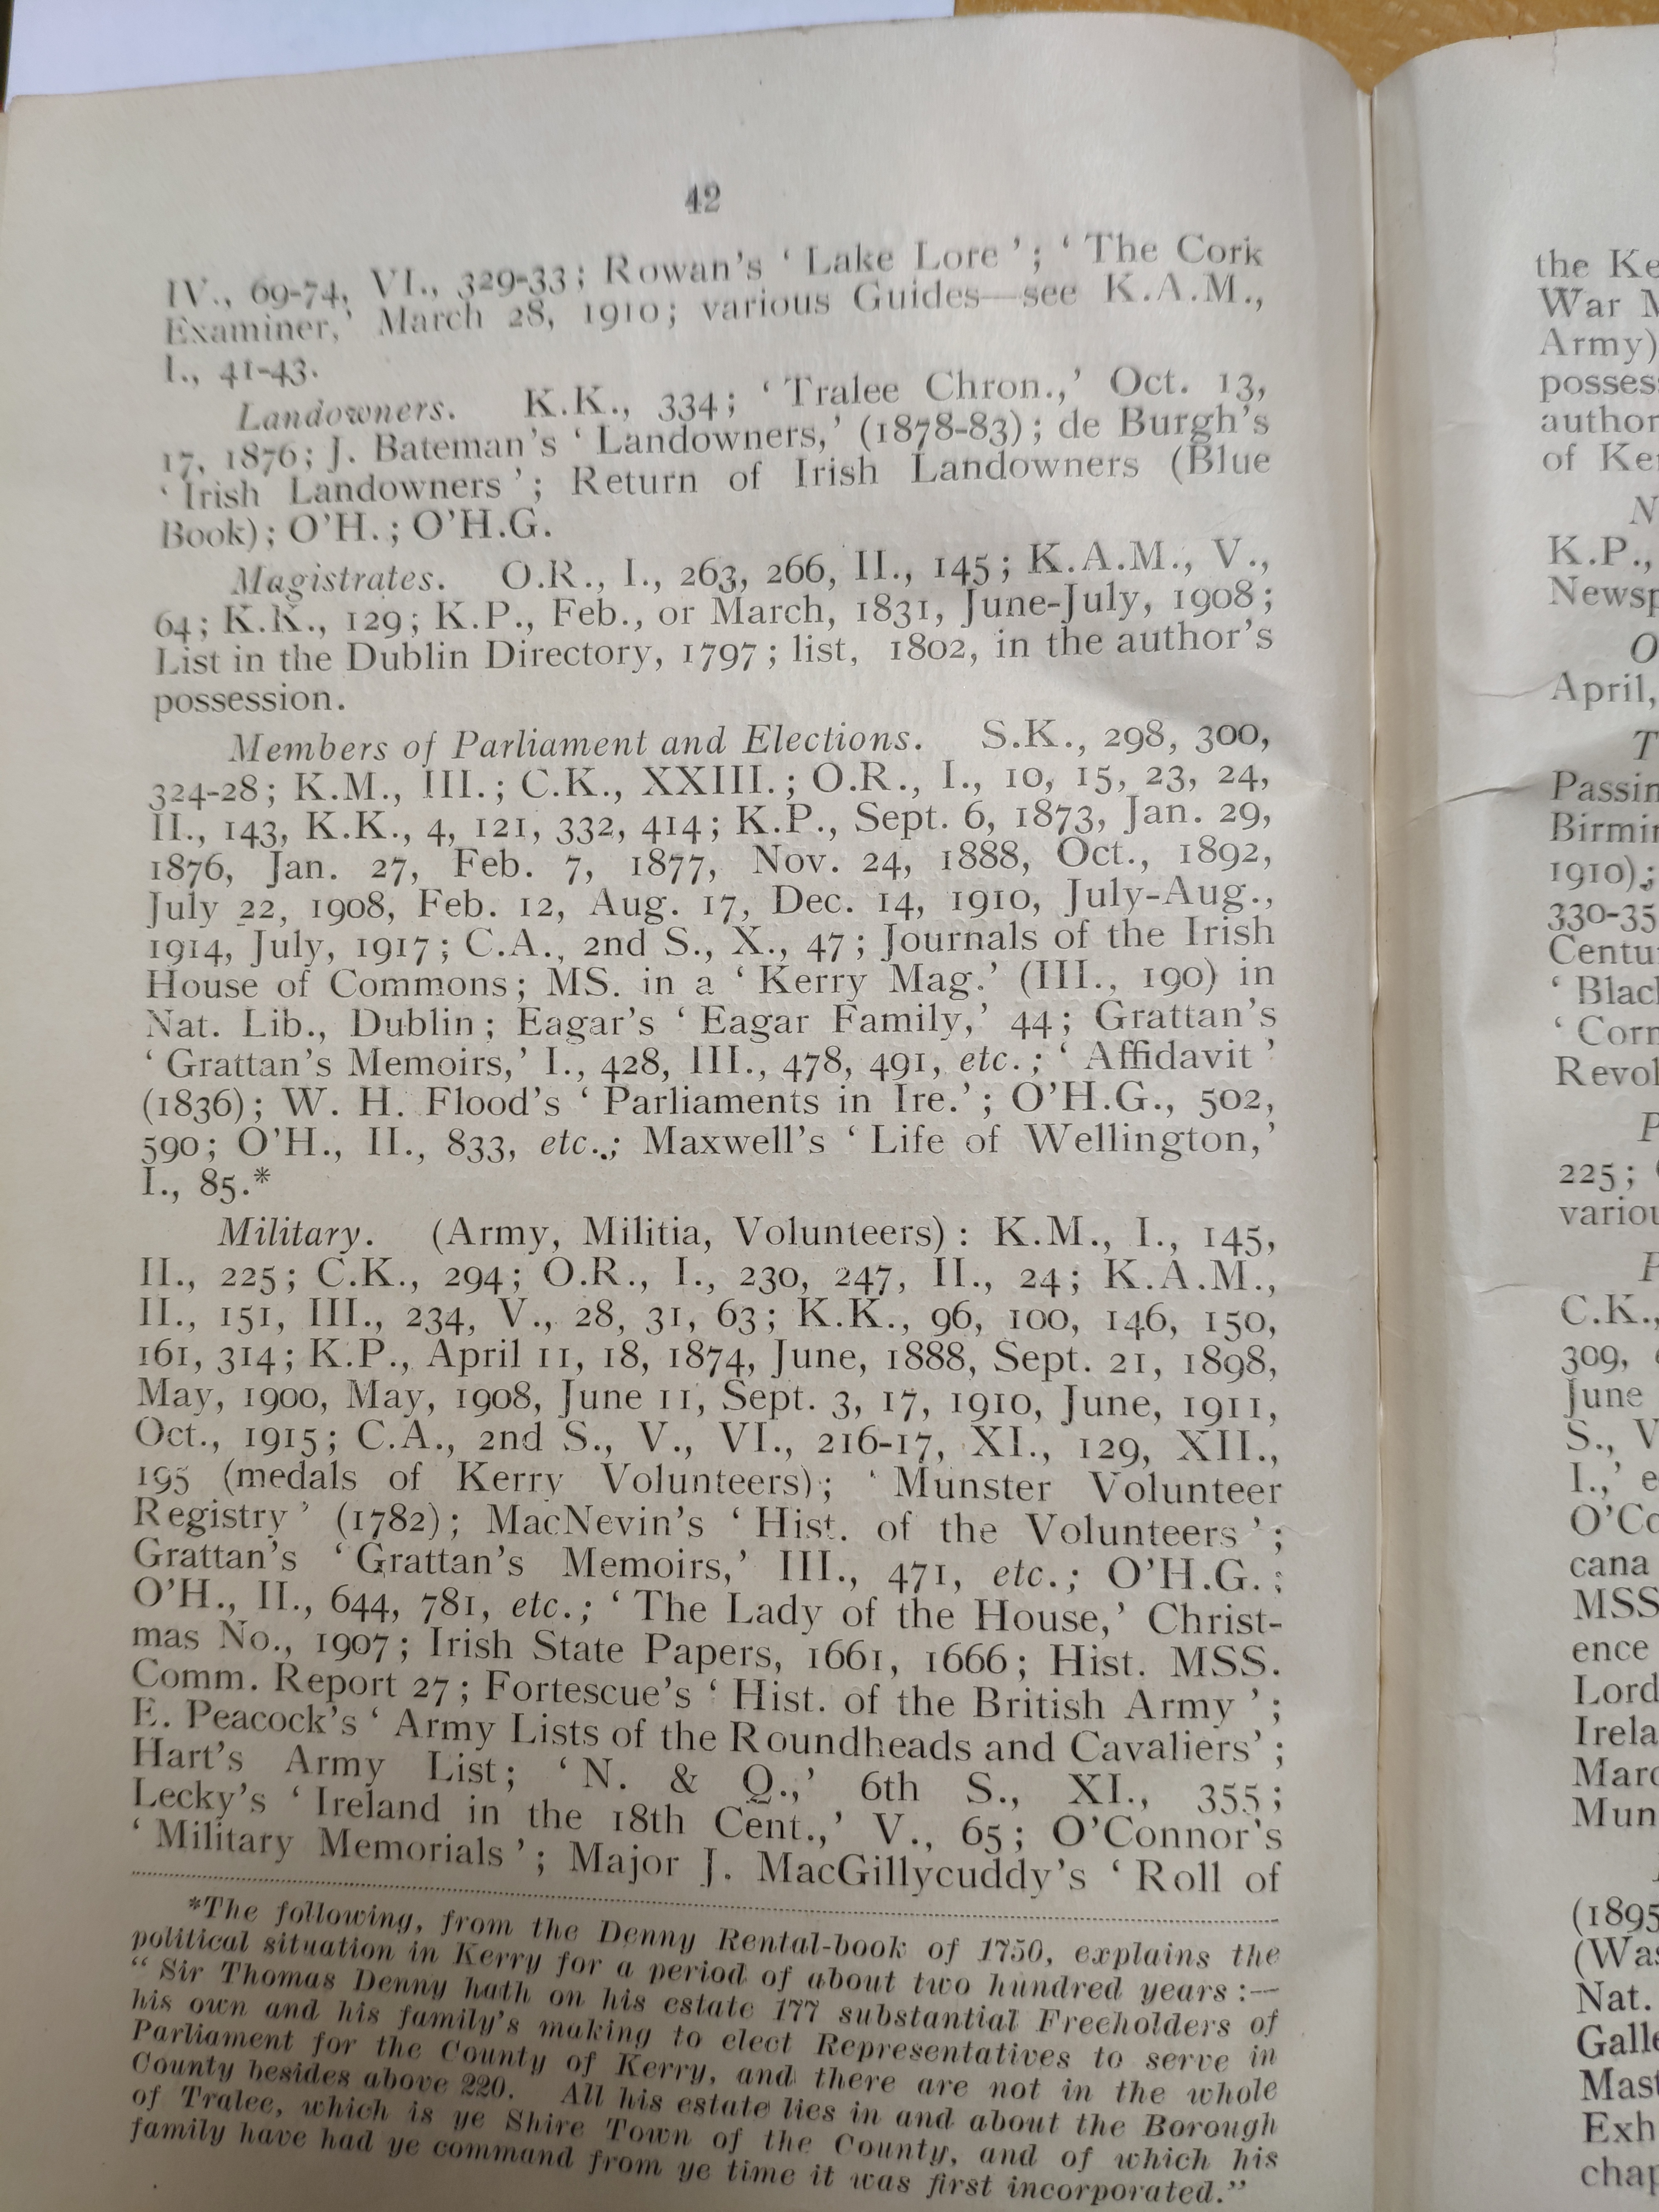 42
IV., 69-74, VI., 329-33; Rowan's ‘ Lake Lore ’; ‘ The Cork
Examiner,’ March 28, 1910; various Guides—see K.A.M.,
I., 41-43.
Landowners. K.K., 334; ‘ Tralee Chron.,’ Oct. 13,
17, 1876; J. Bateman's ‘ Landowners,’ (1878-83); de Burgh's
‘ Irish Landowners ’; Return of Irish Landowners (Blue
Book); O'H.; O'H.G.
Magistrates. O.R., I., 263, 266, II., 145; K.A.M., V.,
64; K.K., 129; K.P., Feb., or March, 1831, June-July, 1908;
List in the Dublin Directory, 1797; list, 1802, in the author's
possession.
Members of Parliament and Elections. S.K., 298, 300,
324-28; K.M., III.; C.K., XXIII.; O.R., I., 10, 15, 23, 24,
II., 143, K.K., 4, 121, 332, 414; K.P., Sept. 6, 1873, Jan. 29,
1876, Jan. 27, Feb. 7, 1877, Nov. 24, 1888, Oct., 1892,
July 22, 1908, Feb. 12, Aug. 17, Dec. 14, 1910, July-Aug.,
1914, July, 1917; C.A., 2nd S., X., 47; Journals of the Irish
House of Commons; MS. in a ‘ Kerry Mag.’ (III., 190) in
Nat. Lib., Dublin; Eagar's ‘ Eagar Family,’ 44; Grattan's
‘ Grattan's Memoirs,’ I., 428, III., 478, 491, etc.; ‘ Affidavit ’
(1836); W. H. Flood's ‘ Parliaments in Ire.’; O'H.G., 502,
590; O'H., II., 833, etc.; Maxwell's ‘ Life of Wellington,’
I., 85.*
Military. (Army, Militia, Volunteers): K.M., I., 145,
II., 225; C.K., 294; O.R., I., 230, 247, II., 24; K.A.M.,
II., 151, III., 234, V., 28, 31, 63; K.K., 96, 100, 146, 150,
161, 314; K.P., April 11, 18, 1874, June, 1888, Sept. 21, 1898,
May, 1900, May, 1908, June 11, Sept. 3, 17, 1910, June, 1911,
Oct., 1915; C.A., 2nd S., V., VI., 216-17, XI., 129, XII.,
195 (medals of Kerry Volunteers); ‘ Munster Volunteer
Registry ’ (1782); MacNevin's ‘ Hist. of the Volunteers ’;
Grattan's ‘ Grattan's Memoirs,’ III., 471, etc.; O'H.G.;
O'H., II., 644, 781, etc.; ‘ The Lady of the House,’ Christ-
mas No., 1907; Irish State Papers, 1661, 1666; Hist. MSS.
Comm. Report 27; Fortescue's ‘ Hist. of the British Army ’;
E. Peacock's ‘ Army Lists of the Roundheads and Cavaliers’;
Hart's Army List; ‘ N. & Q.,’ 6th S., XI., 355;
Lecky's ‘ Ireland in the 18th Cent.,’ V., 65; O'Connor's
‘ Military Memorials ’; Major J. MacGillycuddy's ‘ Roll of
*The following, from the Denny Rental-book of 1750, explains the
political situation in Kerry for a period of about two hundred years :—
“ Sir Thomas Denny hath on his estate 177 substantial Freeholders of
his own and his family's making to elect Representatives to serve in
Parliament for the County of Kerry, and there are not in the whole
County besides above 220. All his estate lies in and about the Borough
of Tralee, which is ye Shire Town of the County, and of which his
family have had ye command from ye time it was first incorporated.”
the Ke
War M
Army)
possess
author
of Ke
N
K.P.,
Newsp
O
April,
T
Passin
Birmin
1910);
330-35
Centu
‘ Blac
‘ Corn
Revol
P
225;
variou
P
C.K.,
309,
June
S., V
I.,’ e
O'Co
cana
MSS
ence
Lord
Irela
Marc
Mun
(1895
(Was
Nat.
Galle
Mast
Exh
chap